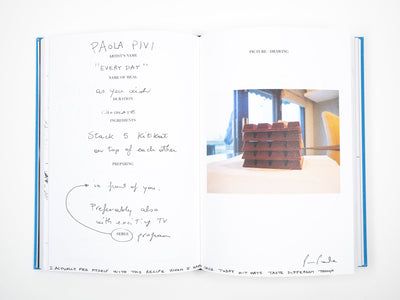 PAOLA PIVI
ARTIST'S NAME
"EVERY DAY"
NAME OF MEAL
as you wish
DURATION
INGREDIENTS
Stack 5 Kitkat
on top of each other
PREPARING
in front of you.
Preferably also
with exciting TV
SERVE program
PICTURE / DRAWING
I ACTUALLY FED MYSELF WITH THIS RECIPE WHEN I WAS TODAY KIT KATS TASTE DIFFERENT THOUGH